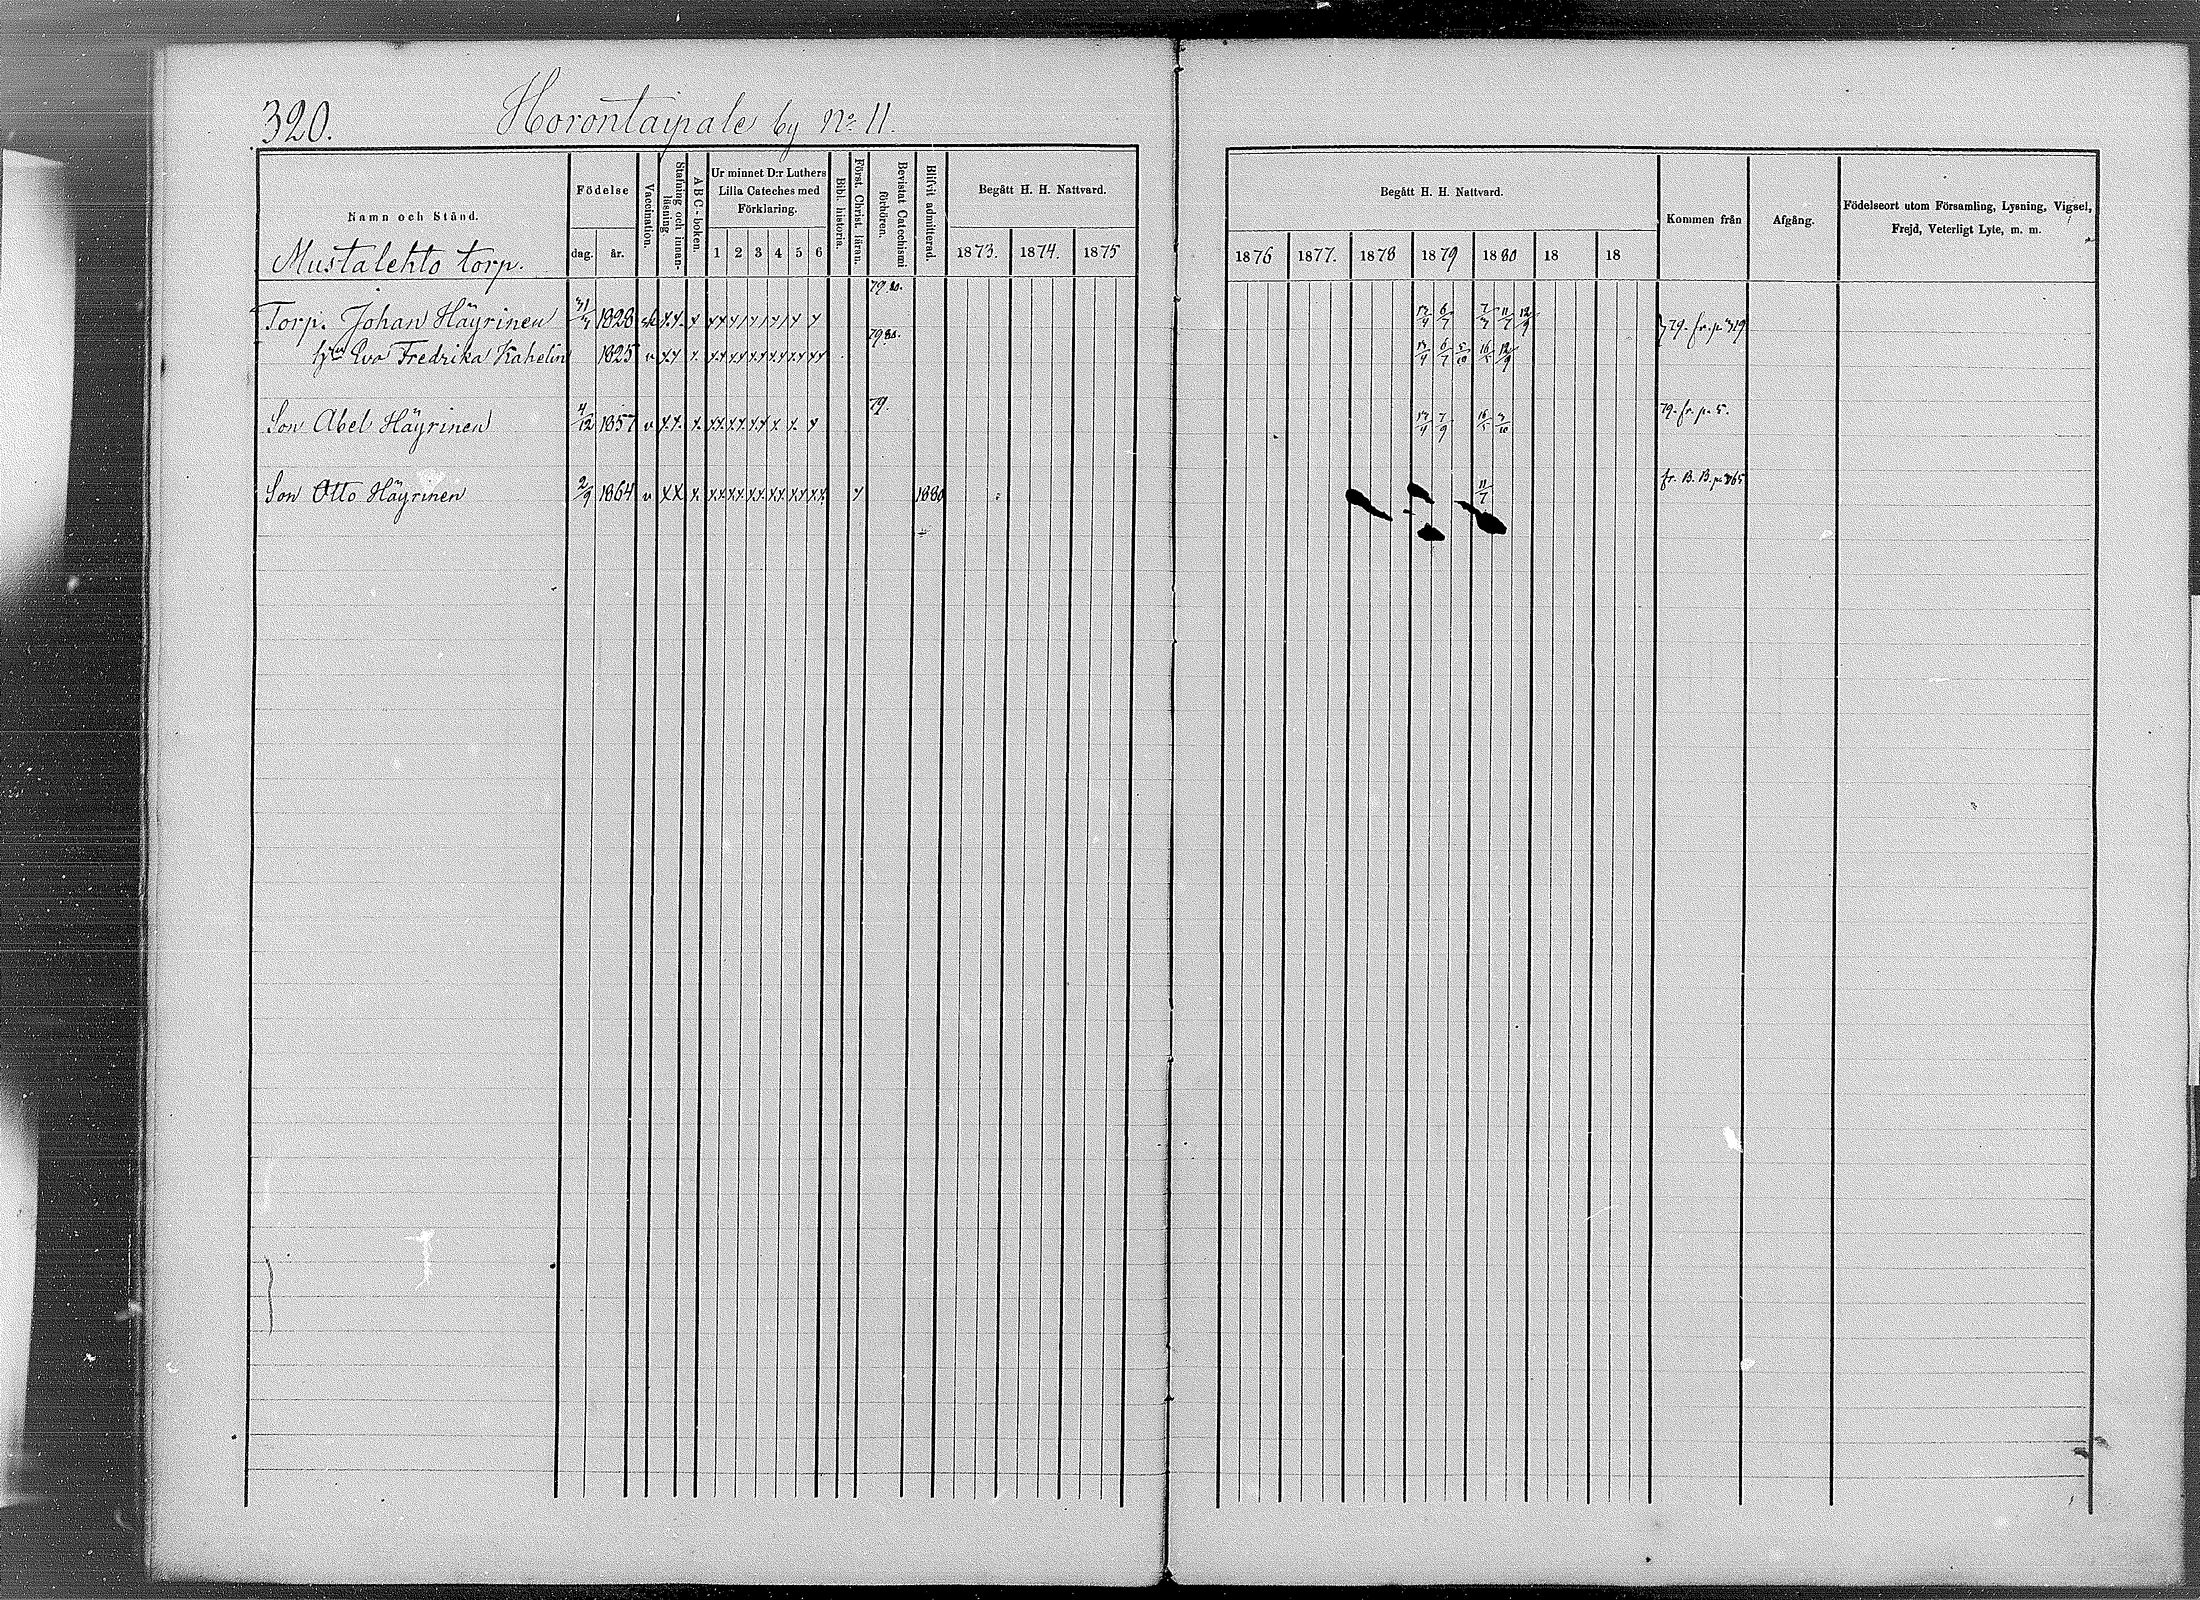 320. Horontaipale by No 11.
Namn och Stånd.
Mustalehto torp.
Födelse
dag. år.
Vaccination.
Stafning och innan-
läsning
A B C-boken.
Ur minnet D:r Luthers
Lilla Cateches med
Förklaring.
1 2 3 4 5 6
Bibl. historia.
Först. Christ. läran.
Bevistat Catechismi
förhören.
Blifvit admitterad.
Begått H. H. Nattvard.
1873. 1874. 1875
Begått H. H. Nattvard.
1876 1877. 1878 1879 1880 18 18
Kommen från
Afgång.
Födelseort utom Församling, Lysning, Vigsel,
Frejd, Veterligt Lyte, m. m.
79. 80.
Torp. Johan Häyrinen 1828 x x 13/4 6/7 11/7 12/9 79. fr. p. 319
79 80.
Eva Fredrika Kahelin 1825 v x x 13/4 6/7 5/10 16/5 12/9
79. 79. fr. p. 5.
Son Abel Häyrinen 4/12 1857 v x x 13/4 7/9 16/5 3/10
fr. B. B. p. 365
Son Otto Häyrinen 2/9 1864 v x x x 1880 11/7